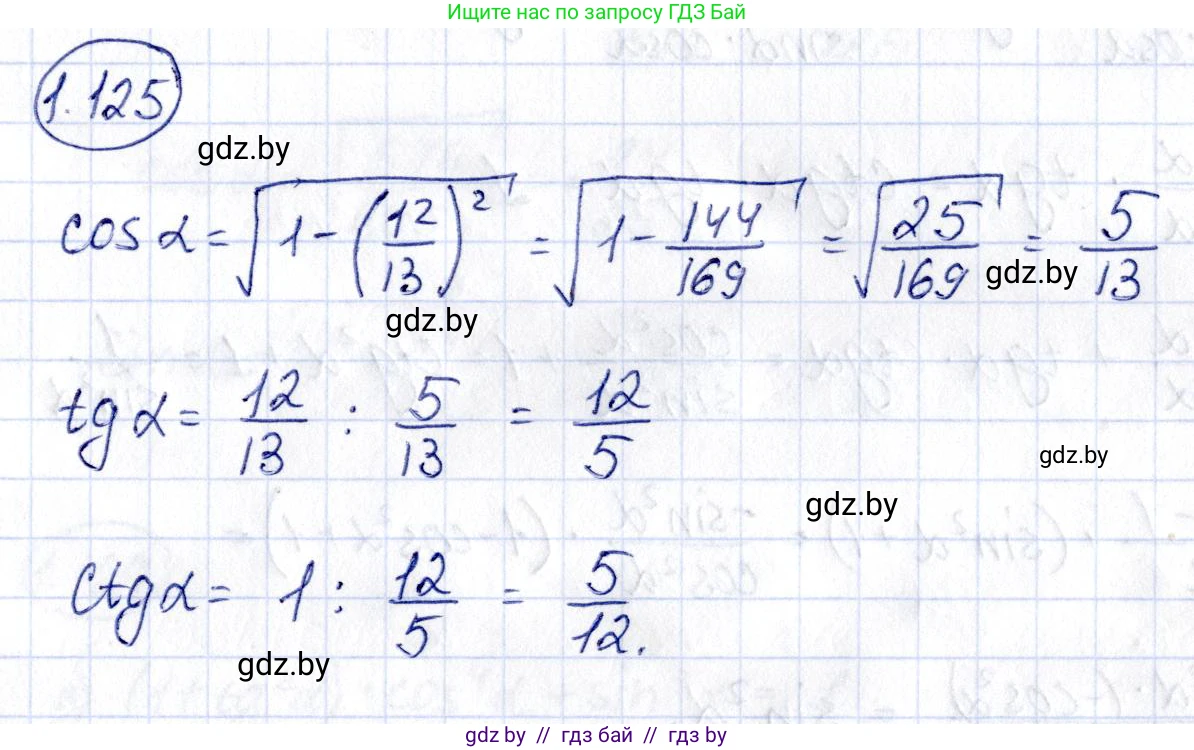 Ищите нас по запросу ГДЗ Бай
1.125
gdz.by
cos α = √(1 - (12/13)²) = √(1 - 144/169) = √(25/169) = 5/13
gdz.by
gdz.by
tg α = 12/13 : 5/13 = 12/5
gdz.by
gdz.by
ctg α = 1 : 12/5 = 5/12.
gdz.by
gdz by // гдз бай // гдз by